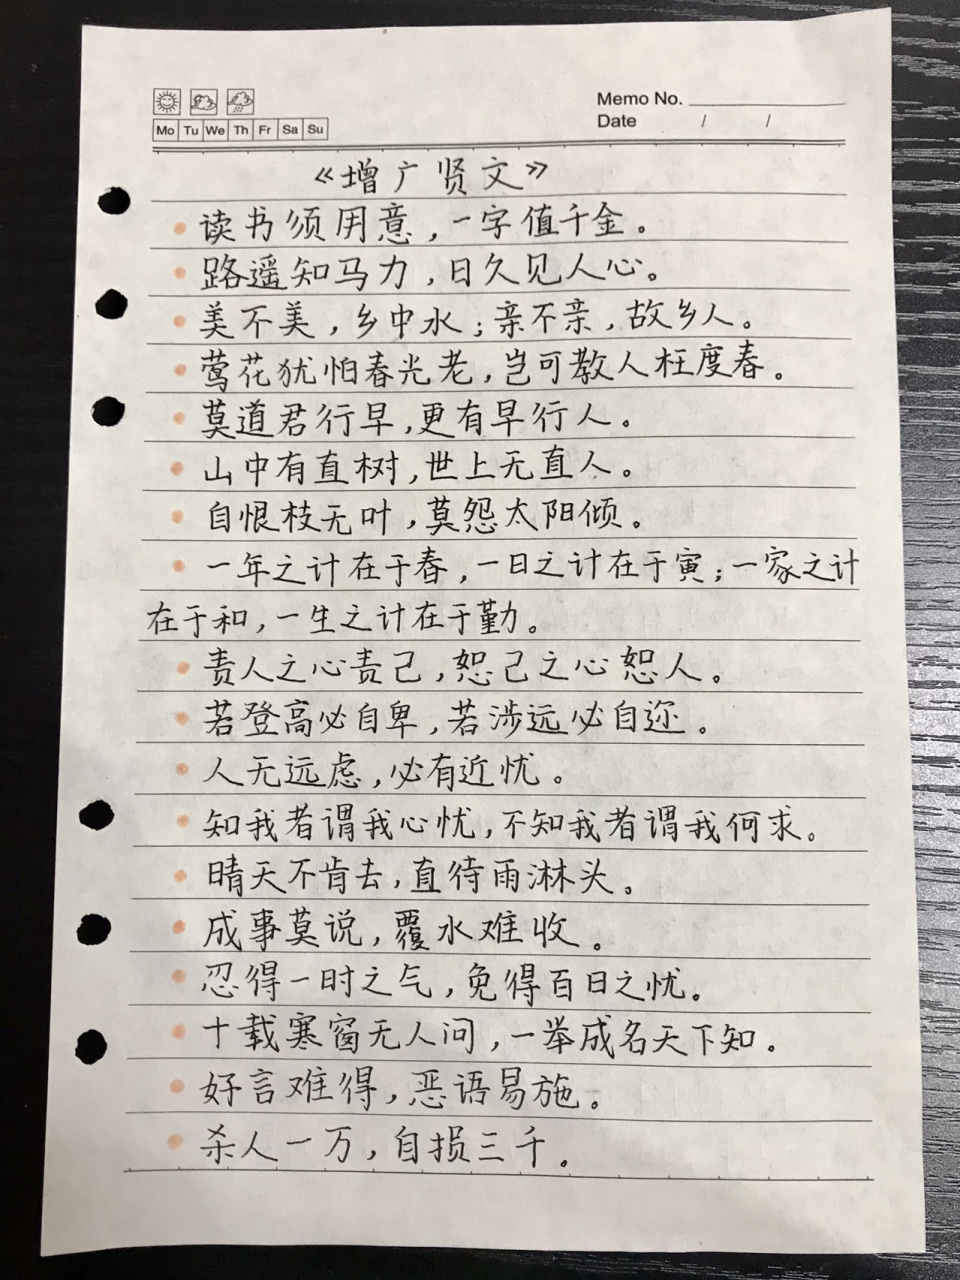 Memo No.
Mo Tu We Th Fr Sa Su
Date / /
《增广贤文》
读书须用意，一字值千金。
路遥知马力，日久见人心。
美不美，乡中水；亲不亲，故乡人。
莺花犹怕春光老，岂可教人枉度春。
莫道君行早，更有早行人。
山中有直树，世上无直人。
自恨枝无叶，莫怨太阳倾。
一年之计在于春，一日之计在于寅；一家之计
在于和，一生之计在于勤。
责人之心责己，恕己之心恕人。
若登高必自卑，若涉远必自迩。
人无远虑，必有近忧。
知我者谓我心忧，不知我者谓我何求。
晴天不肯去，直待雨淋头。
成事莫说，覆水难收。
忍得一时之气，免得百日之忧。
十载寒窗无人问，一举成名天下知。
好言难得，恶语易施。
杀人一万，自损三千。